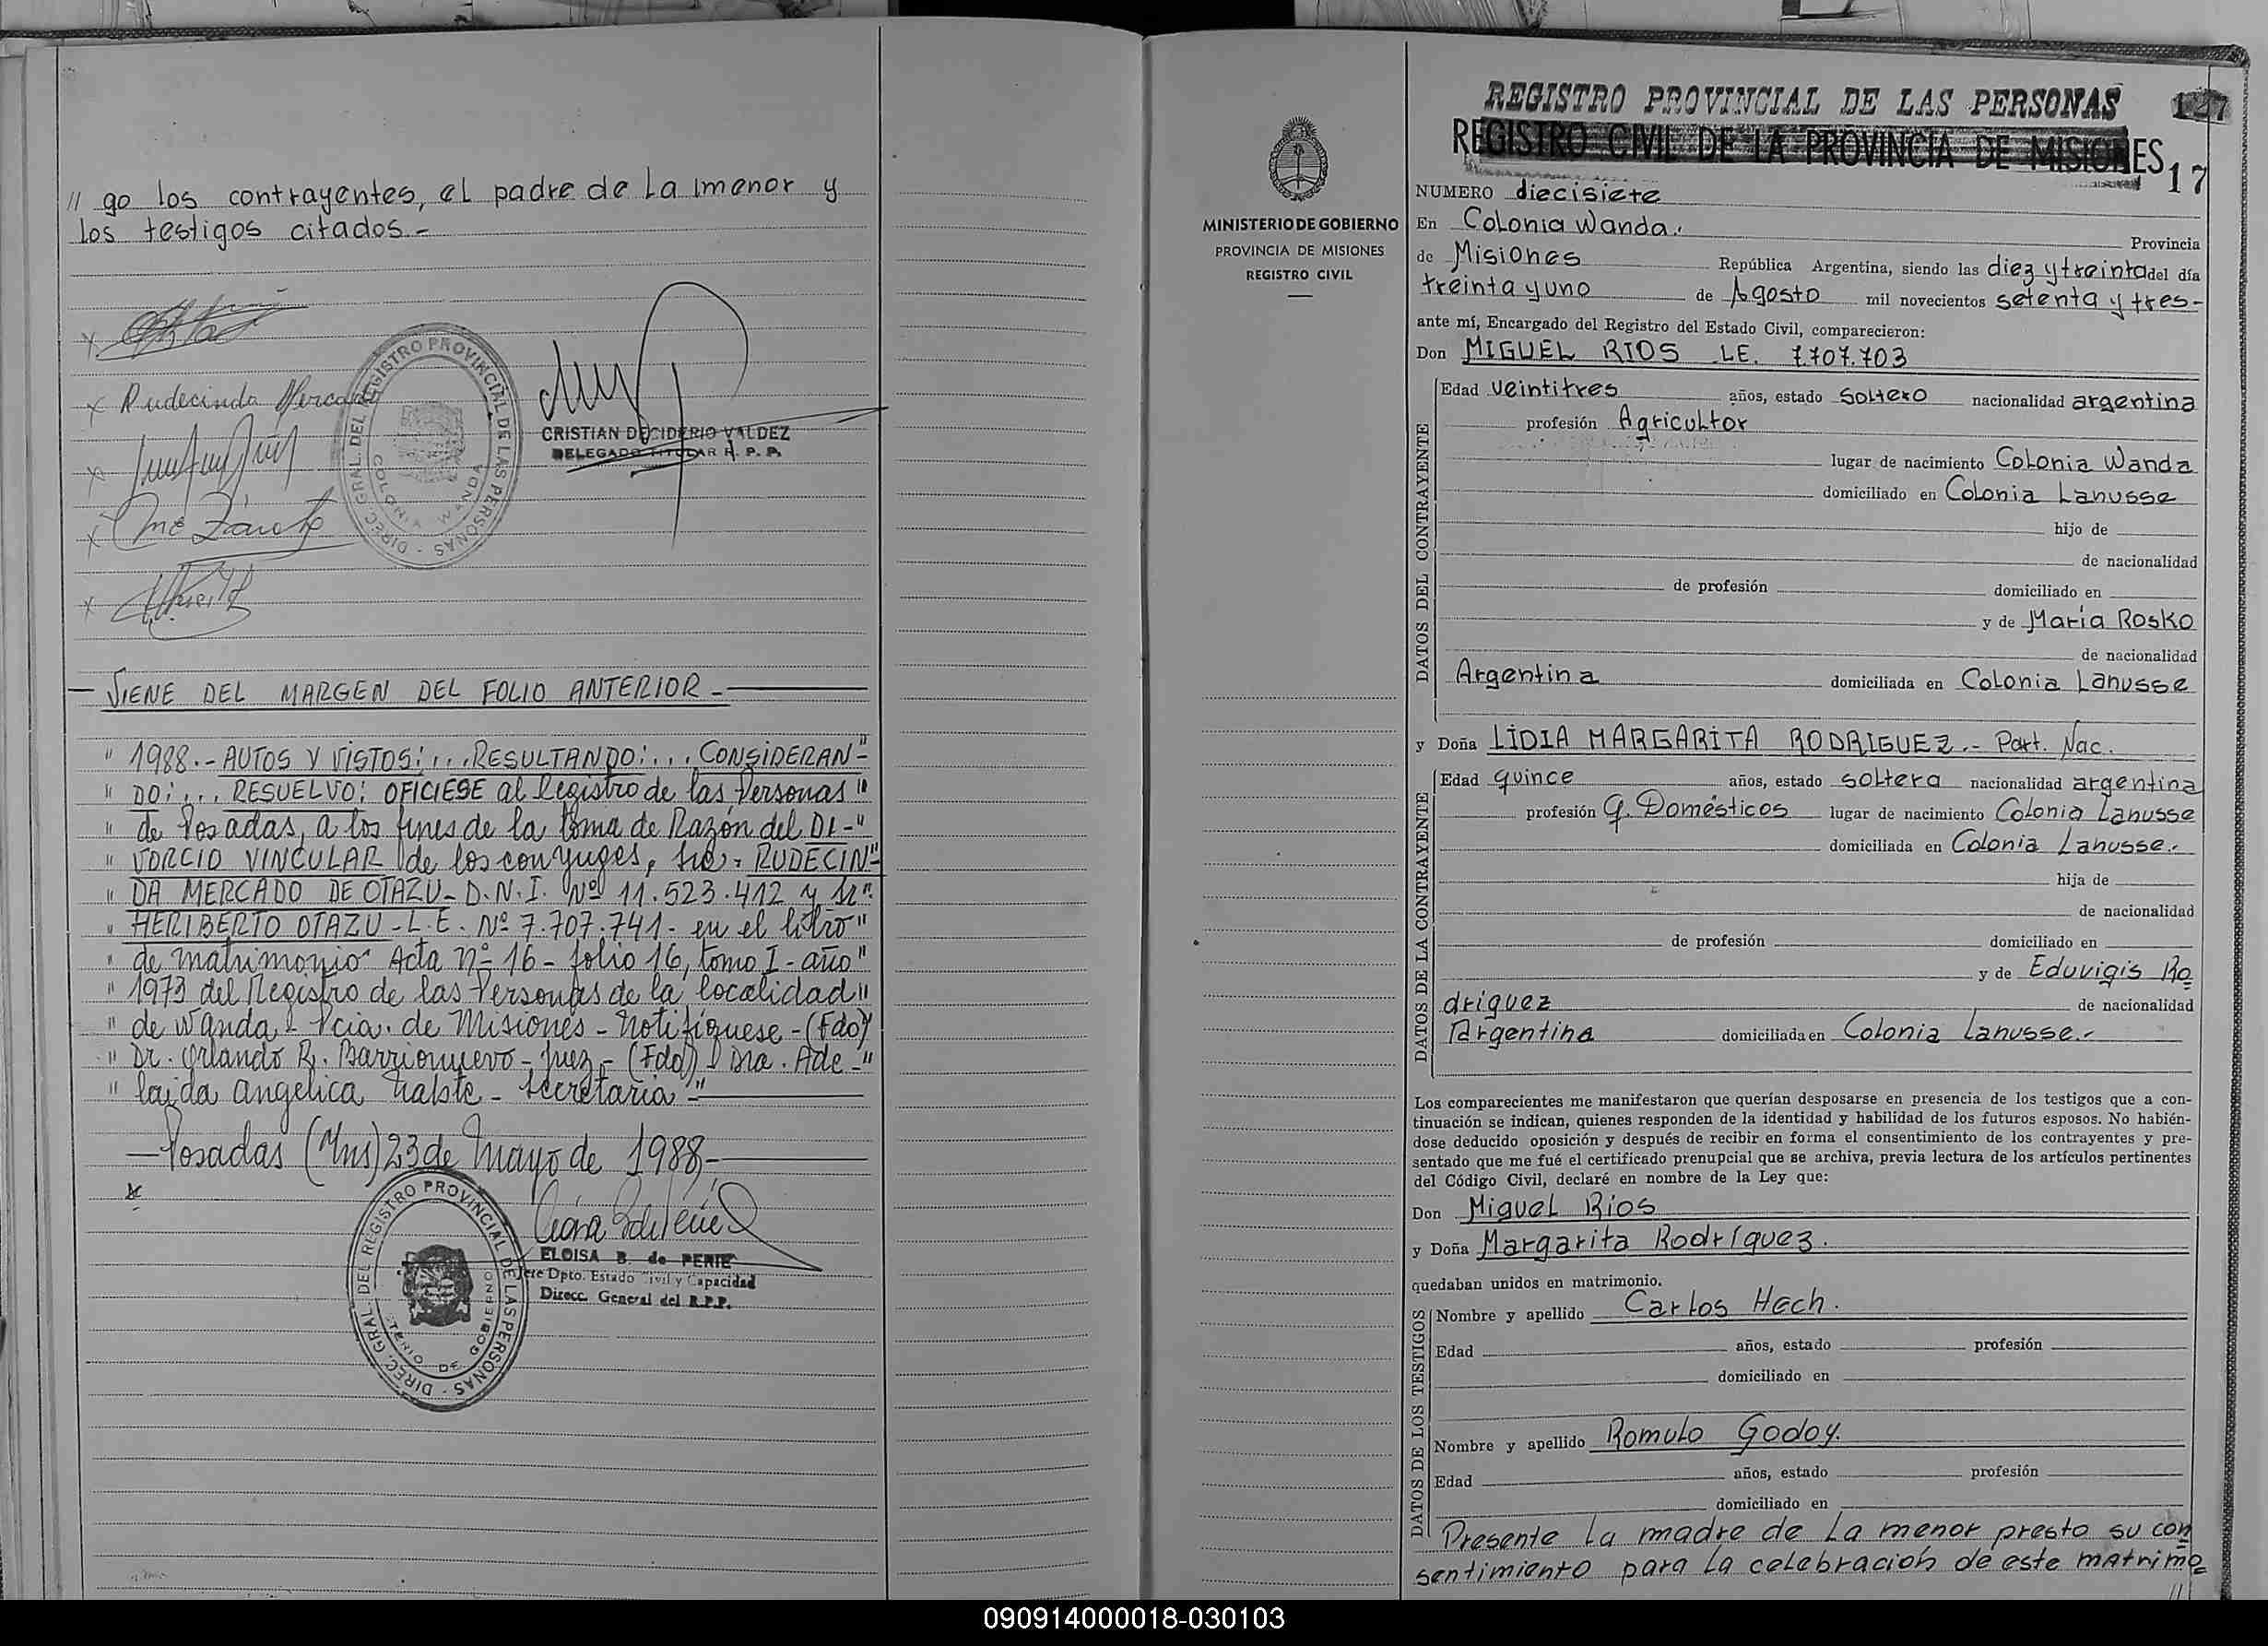 // go los contrayentes, el padre de la menor y
los testigos citados.-
x
x Rudecinda Mercado
x
x
x
DIREC. GRAL. DEL REGISTRO PROVINCIAL DE LAS PERSONAS
COLONIA WANDA
CRISTIAN DECIDERIO VALDEZ
DELEGADO TITULAR R. P. P.
— VIENE DEL MARGEN DEL FOLIO ANTERIOR -
" 1988.- AUTOS Y VISTOS:...RESULTANDO:... CONSIDERAN-"
" DO:... RESUELVO: OFICIESE al Registro de las Personas "
" de Posadas, a los fines de la toma de Razón del DI-"
" VORCIO VINCULAR de los conyuges, Sra. RUDECIN-"
" DA MERCADO DE OTAZU - D.N.I. Nº 11.523.412 y Sr."
" HERIBERTO OTAZU - L.E. Nº 7.707.741 - en el libro"
" de matrimonio Acta nº 16 - folio 16, tomo I - año"
" 1973 del Registro de las Personas de la localidad"
" de Wanda - Pcia. de Misiones - Notifíquese - (Fdo)"
" Dr. Orlando R. Barrionuevo - Juez - (Fdo) Dra. Ade-"
" laida Angelica - Secretaria -"
— Posadas (Mns) 23 de Mayo de 1988,-
DIREC. GRAL. DEL REGISTRO PROVINCIAL DE LAS PERSONAS
DE GOBIERNO
ELOISA B. de PERIE
Jefe Dpto. Estado Civil y Capacidad
Direcc. General del R.P.P.
MINISTERIO DE GOBIERNO
PROVINCIA DE MISIONES
REGISTRO CIVIL
REGISTRO PROVINCIAL DE LAS PERSONAS 127
REGISTRO CIVIL DE LA PROVINCIA DE MISIONES 17
NUMERO diecisiete
En Colonia Wanda. Provincia
de Misiones República Argentina, siendo las diez y treinta del día
treinta y uno de Agosto mil novecientos setenta y tres-
ante mí, Encargado del Registro del Estado Civil, comparecieron:
Don MIGUEL RIOS LE. 7.707.703
DATOS DEL CONTRAYENTE
Edad veintitres años, estado soltero nacionalidad argentina
profesión Agricultor
lugar de nacimiento Colonia Wanda
domiciliado en Colonia Lanusse
hijo de
de nacionalidad
de profesión domiciliado en
y de María Rosko
de nacionalidad
Argentina domiciliada en Colonia Lanusse
y Doña LIDIA MARGARITA RODRIGUEZ.- Part. Nac.
DATOS DE LA CONTRAYENTE
Edad quince años, estado soltera nacionalidad argentina
profesión Q. Domésticos lugar de nacimiento Colonia Lanusse
domiciliada en Colonia Lanusse.-
hija de
de nacionalidad
de profesión domiciliado en
y de Eduvigis Ro
driguez de nacionalidad
Argentina domiciliada en Colonia Lanusse.-
Los comparecientes me manifestaron que querían desposarse en presencia de los testigos que a con-
tinuación se indican, quienes responden de la identidad y habilidad de los futuros esposos. No habién-
dose deducido oposición y después de recibir en forma el consentimiento de los contrayentes y pre-
sentado que me fué el certificado prenupcial que se archiva, previa lectura de los artículos pertinentes
del Código Civil, declaré en nombre de la Ley que:
Don Miguel Rios
y Doña Margarita Rodríguez.
quedaban unidos en matrimonio.
DATOS DE LOS TESTIGOS
Nombre y apellido Carlos Hech.
Edad años, estado profesión
domiciliado en
Nombre y apellido Romulo Godoy.
Edad años, estado profesión
domiciliado en
Presente la madre de la menor presto su con
sentimiento para la celebración de este matrimo
//
090914000018-030103